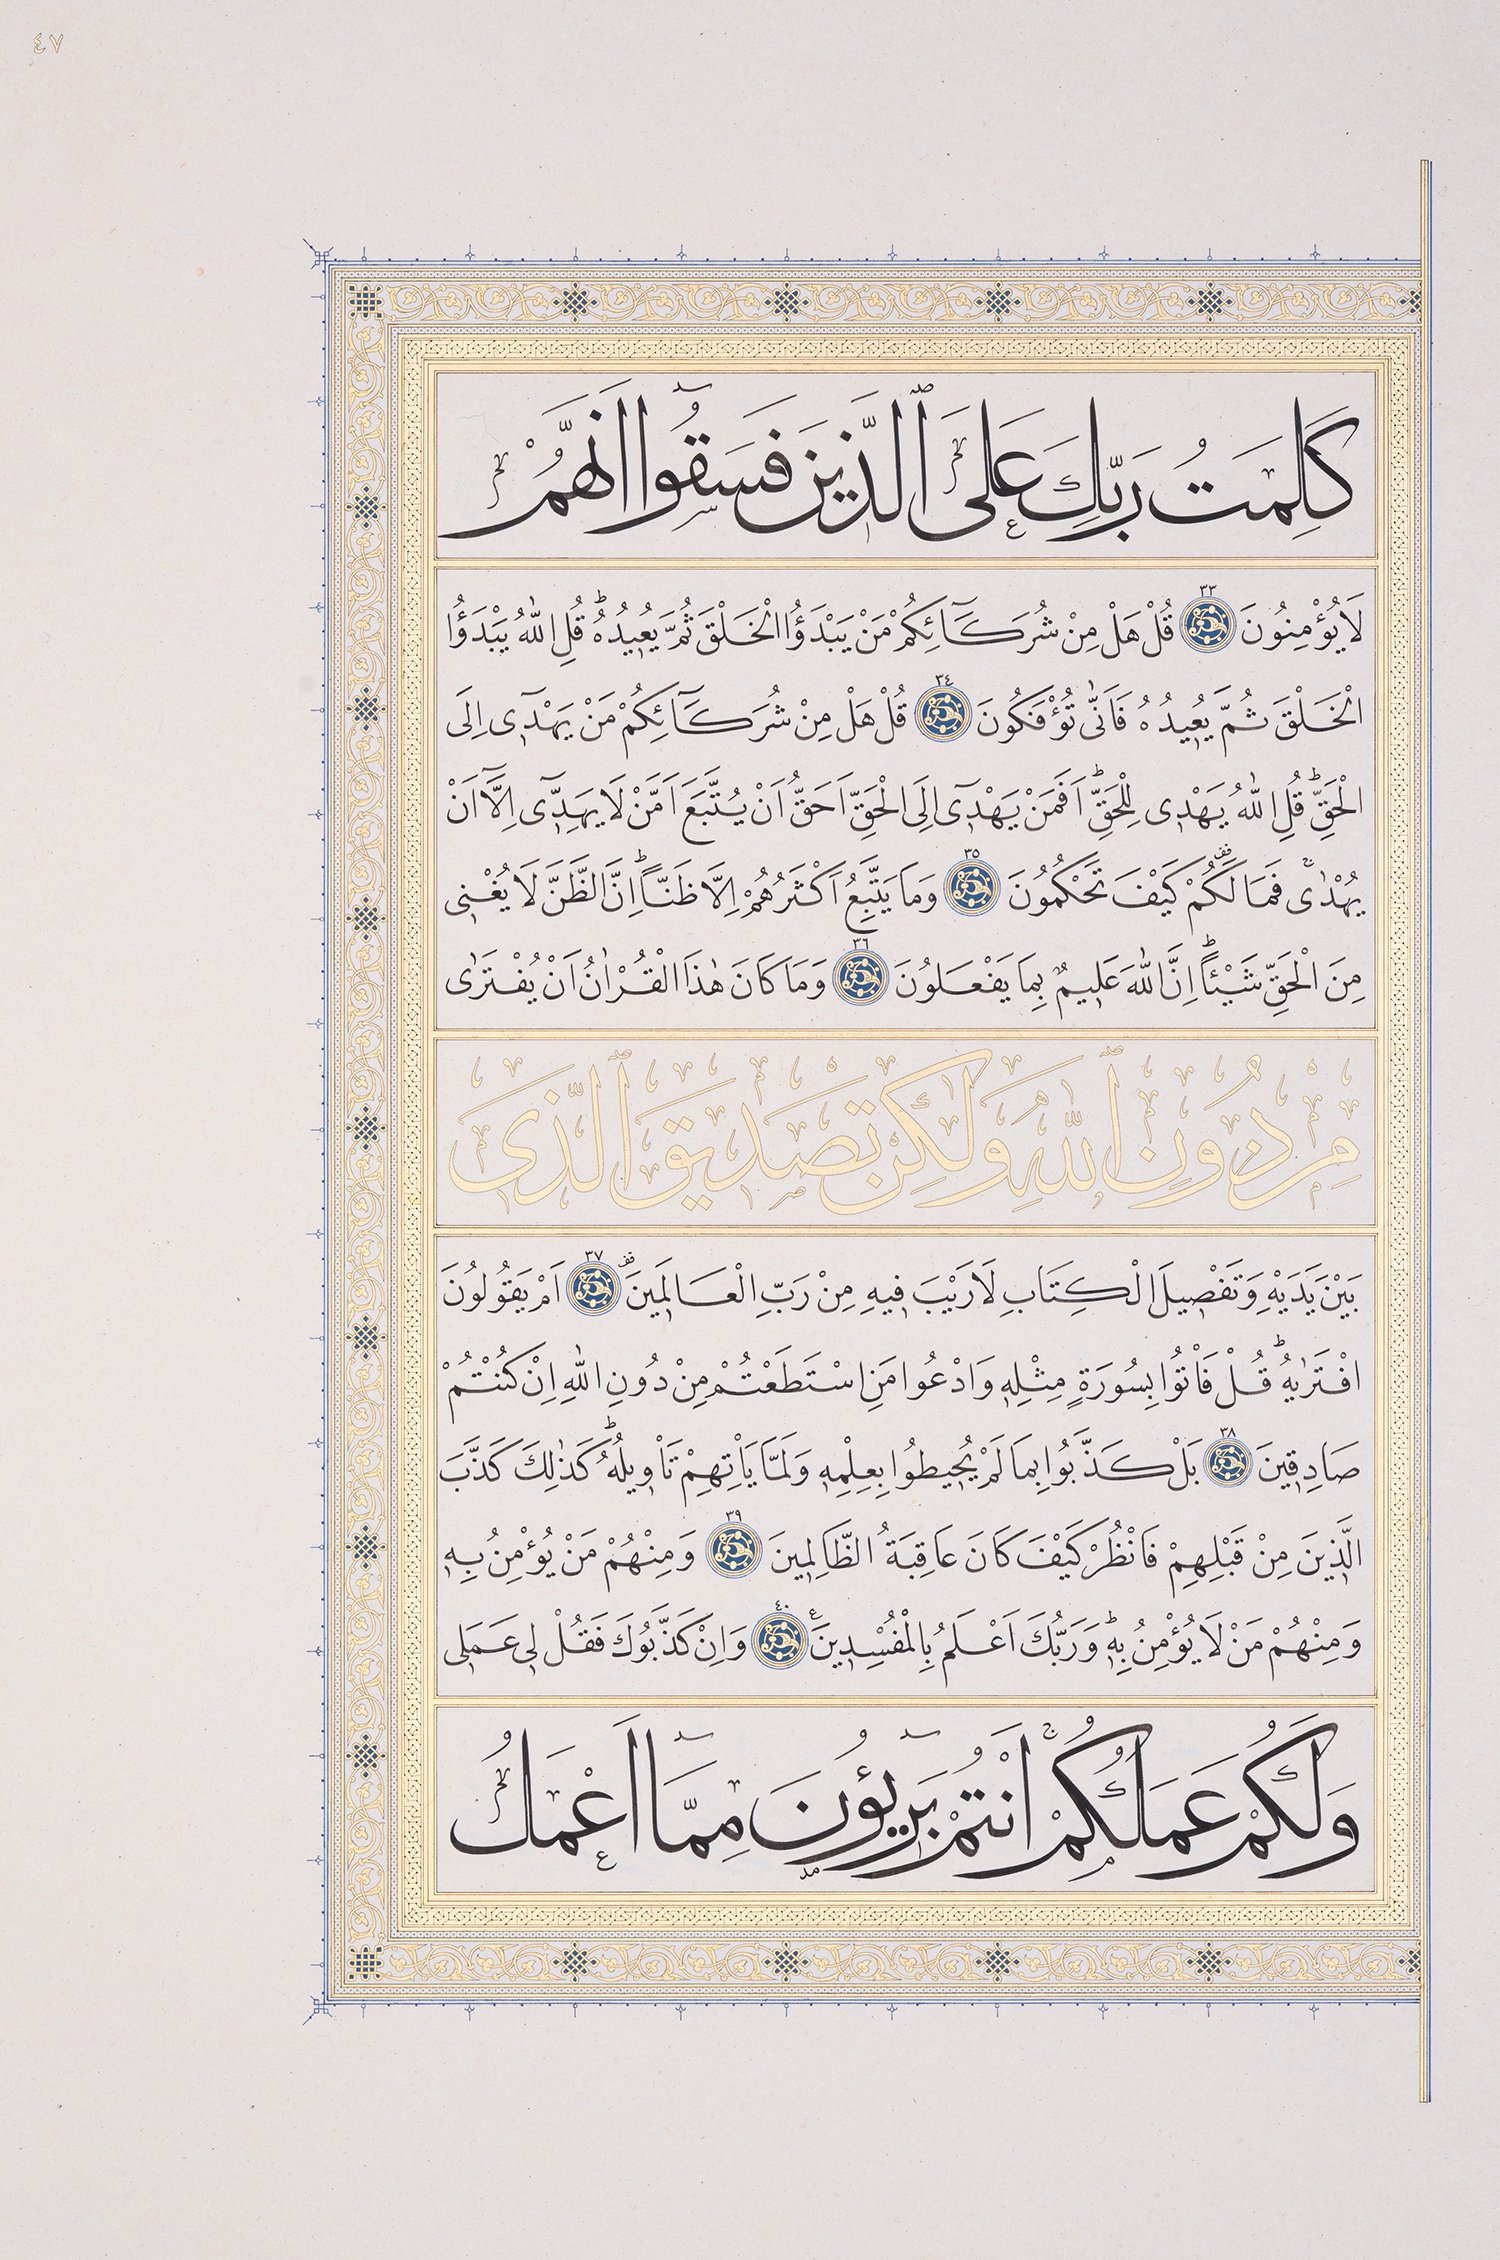 ٤٧
كَلِمَتُ رَبِّكَ عَلَى ٱلَّذِينَ فَسَقُٓوا اَنَّهُمْ
لَا يُؤْمِنُونَ ٣٣ قُلْ هَلْ مِنْ شُرَكَٓائِكُمْ مَنْ يَبْدَؤُا الْخَلْقَ ثُمَّ يَعٖيدُهُؕ قُلِ اللّٰهُ يَبْدَؤُا
الْخَلْقَ ثُمَّ يُعٖيدُهُ فَاَنّٰى تُؤْفَكُونَ ٣٤ قُلْ هَلْ مِنْ شُرَكَٓائِكُمْ مَنْ يَهْدٖٓى اِلَى
الْحَقِّؕ قُلِ اللّٰهُ يَهْدٖى لِلْحَقِّؕ اَفَمَنْ يَهْدٖٓى اِلَى الْحَقِّ اَحَقُّ اَنْ يُتَّبَعَ اَمَّنْ لَا يَهِدّٖٓى اِلَّٓا اَنْ
يُهْدٰىۚ فَمَا لَكُمْࣞ كَيْفَ تَحْكُمُونَ ٣٥ وَمَا يَتَّبِعُ اَكْثَرُهُمْ اِلَّا ظَنًّاؕ اِنَّ الظَّنَّ لَا يُغْنٖى
مِنَ الْحَقِّ شَيْـًٔاؕ اِنَّ اللّٰهَ عَلٖيمٌ بِمَا يَفْعَلُونَ ٣٦ وَمَا كَانَ هٰذَا الْقُرْاٰنُ اَنْ يُفْتَرٰى
مِنْ دُونِ ٱللّٰهِ وَلٰكِنْ تَصْدٖيقَ ٱلَّذٖى
بَيْنَ يَدَيْهِ وَتَفْصٖيلَ الْكِتَابِ لَا رَيْبَ فٖيهِ مِنْ رَبِّ الْعَالَمٖينَࣞ ٣٧ اَمْ يَقُولُونَ
افْتَرٰيهُؕ قُلْ فَاْتُوا بِسُورَةٍ مِثْلِهٖ وَادْعُوا مَنِ اسْتَطَعْتُمْ مِنْ دُونِ اللّٰهِ اِنْ كُنْتُمْ
صَادِقٖينَ ٣٨ بَلْ كَذَّبُوا بِمَا لَمْ يُحٖيطُوا بِعِلْمِهٖ وَلَمَّا يَاْتِهِمْ تَاْوٖيلُهُؕ كَذٰلِكَ كَذَّبَ
الَّذٖينَ مِنْ قَبْلِهِمْ فَانْظُرْ كَيْفَ كَانَ عَاقِبَةُ الظَّالِمٖينَ ٣٩ وَمِنْهُمْ مَنْ يُؤْمِنُ بِهٖ
وَمِنْهُمْ مَنْ لَا يُؤْمِنُ بِهٖؕ وَرَبُّكَ اَعْلَمُ بِالْمُفْسِدٖينَࣖ ٤٠ وَاِنْ كَذَّبُوكَ فَقُلْ لٖى عَمَلٖى
وَلَكُمْ عَمَلُكُمْۚ اَنْتُمْ بَرٖٓيؤُنَ مِمَّٓا اَعْمَلُ